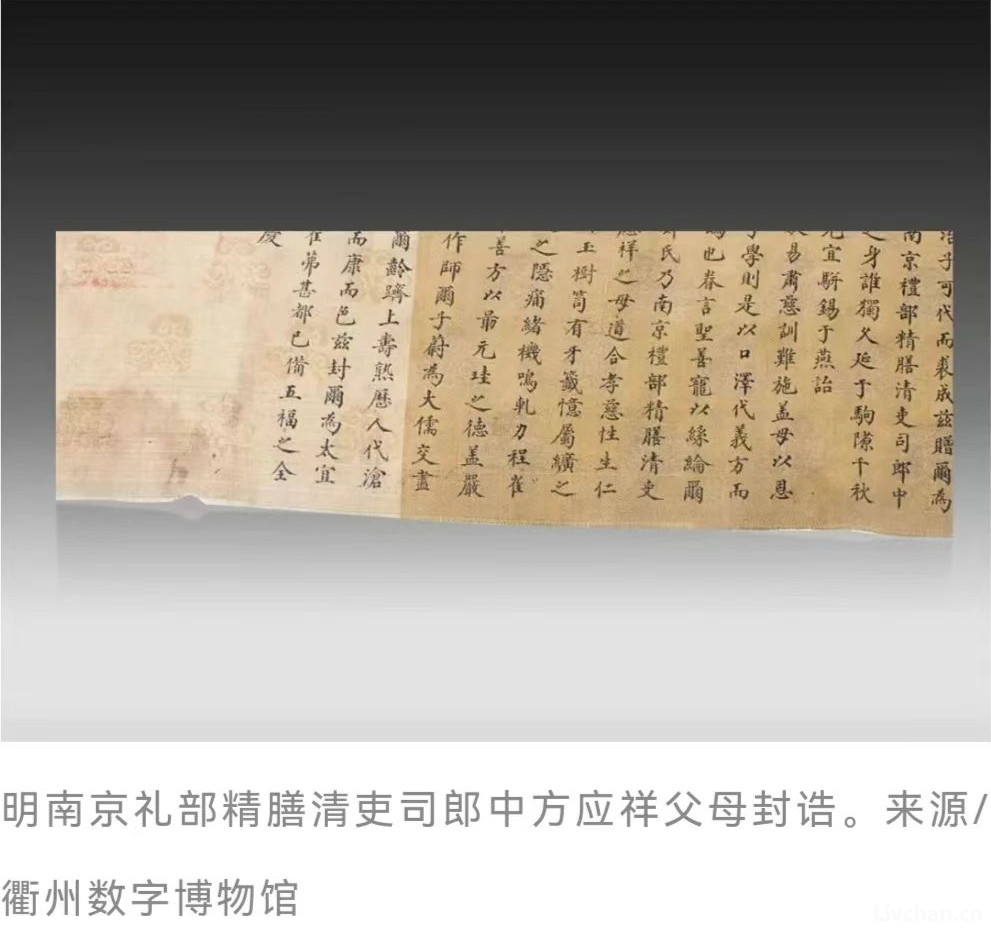 子可代而裘成茲贈爾為
南京禮部精膳清吏司郎中
之身誰獨久延于駒隙千秋
宜駢錫于燕詒
易肅慈訓難施盖母以恩
學則是以口澤代義方而
也眷言聖善寵以綵綸爾
氏乃南京禮部精膳清吏
祥之母道合孝慈性生仁
玉樹笥有牙籤憶屬纊之
之隱痛緒機鳴軋力程
善方以元珪之德盖嚴
作師爾子蔚為大儒交盡
爾齡躋上壽歷人代滄
而康而色茲封爾為太宜
弟甚都已備五福之全
慶
明南京礼部精膳清吏司郎中方应祥父母封诰。来源/
衢州数字博物馆
Livchan.cn